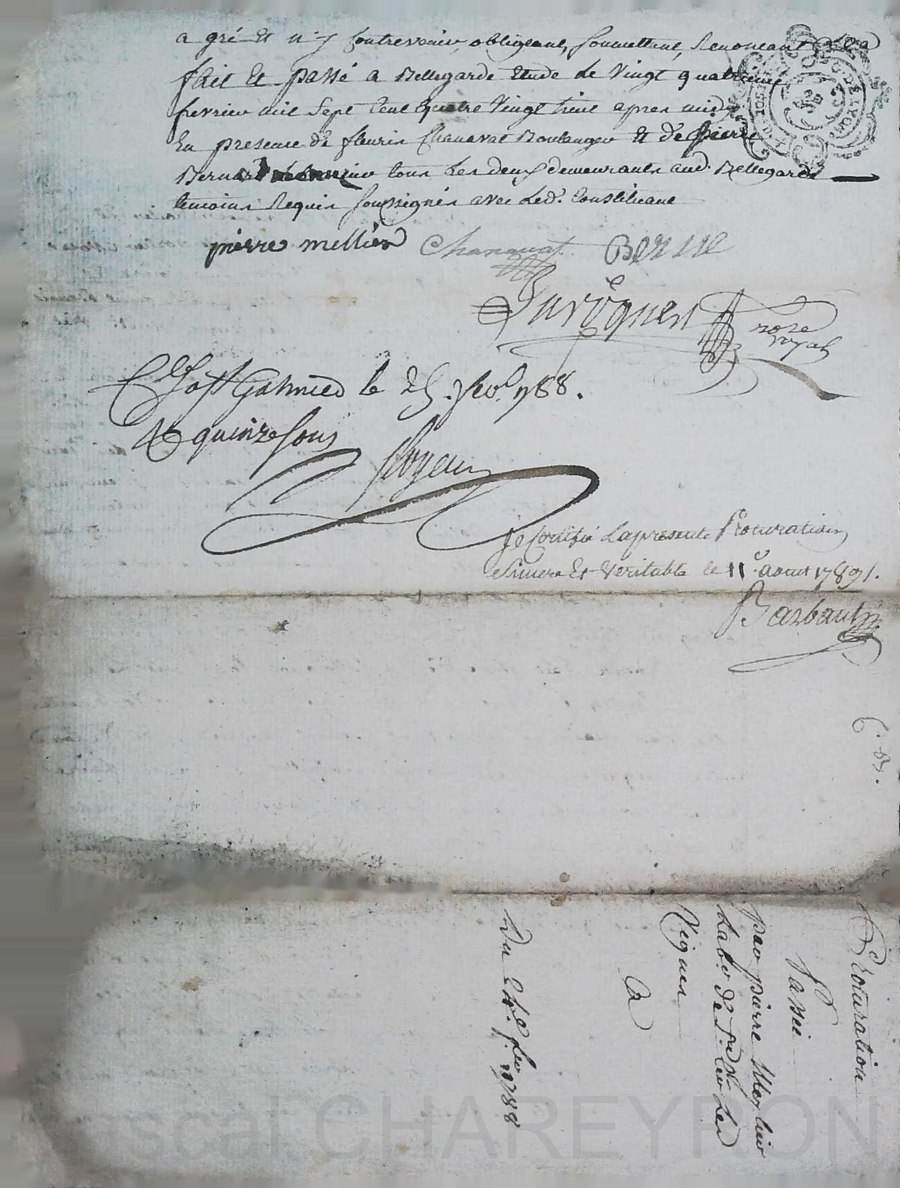 a gré et n'y contrevenir, obligeant, soumettant, Renonçant
fait et passé a Bellegarde Etude le vingt quatrieme
fevrier mil sept cent quatre vingt huit apres midy
En presence de fleuris Chanavat Boulanger et de pierre
Bernard tous les deux demeurants aud. Bellegarde
temoins Requis soussignés avec led. Constituant
pierre mellier Chanavat Berne
nore royal
a St Galmier le 25. fev. 1788.
R quinze sous
je Certifie lapresente Procuration
Sincere Et veritable le 11 aout 1789.
Barbault
Procuration
Passée
par pierre Mellier
Labo. de St
Vignes
a
Du 24 fev 1788
Pascal CHAREYRON